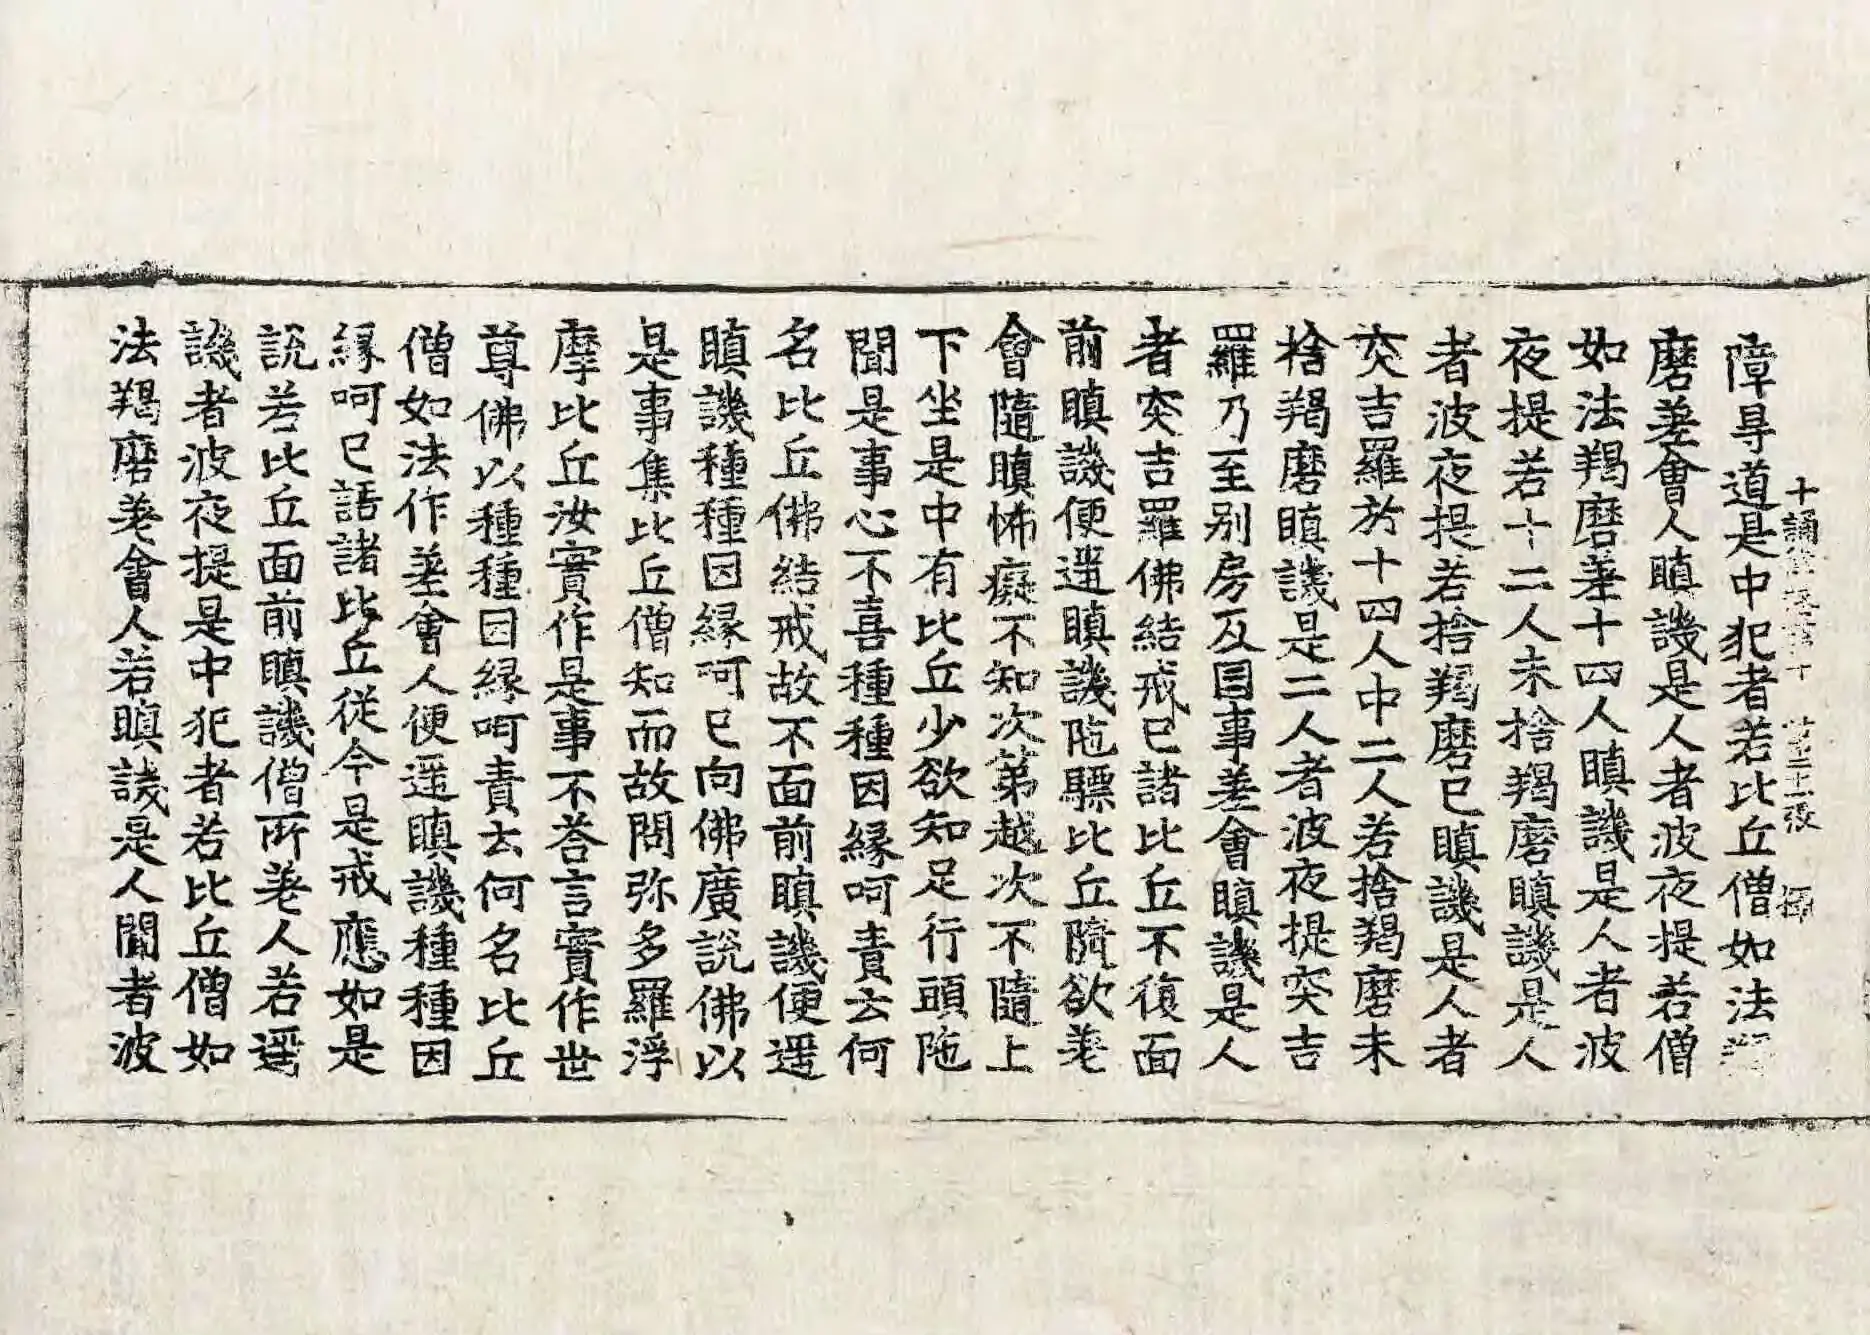 障㝵道是中犯者若比丘僧如法羯
磨差會人瞋譏是人者波夜提若僧
如法羯磨差十四人瞋譏是人者波
夜提若十二人未捨羯磨瞋譏是人
者波夜提若捨羯磨已瞋譏是人者
突吉羅於十四人中二人若捨羯磨未
捨羯磨瞋譏是二人者波夜提突吉
羅乃至别房及因事差會瞋譏是人
者突吉羅佛結戒已諸比丘不復面
前瞋譏便遥瞋譏陁驃比丘隨欲差
會隨瞋怖癡不知次第越次不隨上
下坐是中有比丘少欲知足行頭陁
聞是事心不喜種種因緣呵責云何
名比丘佛結戒故不面前瞋譏便遥
瞋譏種種因緣呵已向佛廣說佛以
是事集比丘僧知而故問弥多羅浮
摩比丘汝實作是事不荅言實作世
尊佛以種種因緣呵責云何名比丘
僧如法作差會人便遥瞋譏種種因
緣呵已語諸比丘從今是戒應如是
說若比丘面前瞋譏僧所差人若遥
譏者波夜提是中犯者若比丘僧如
法羯磨差會人若瞋譏是人聞者波